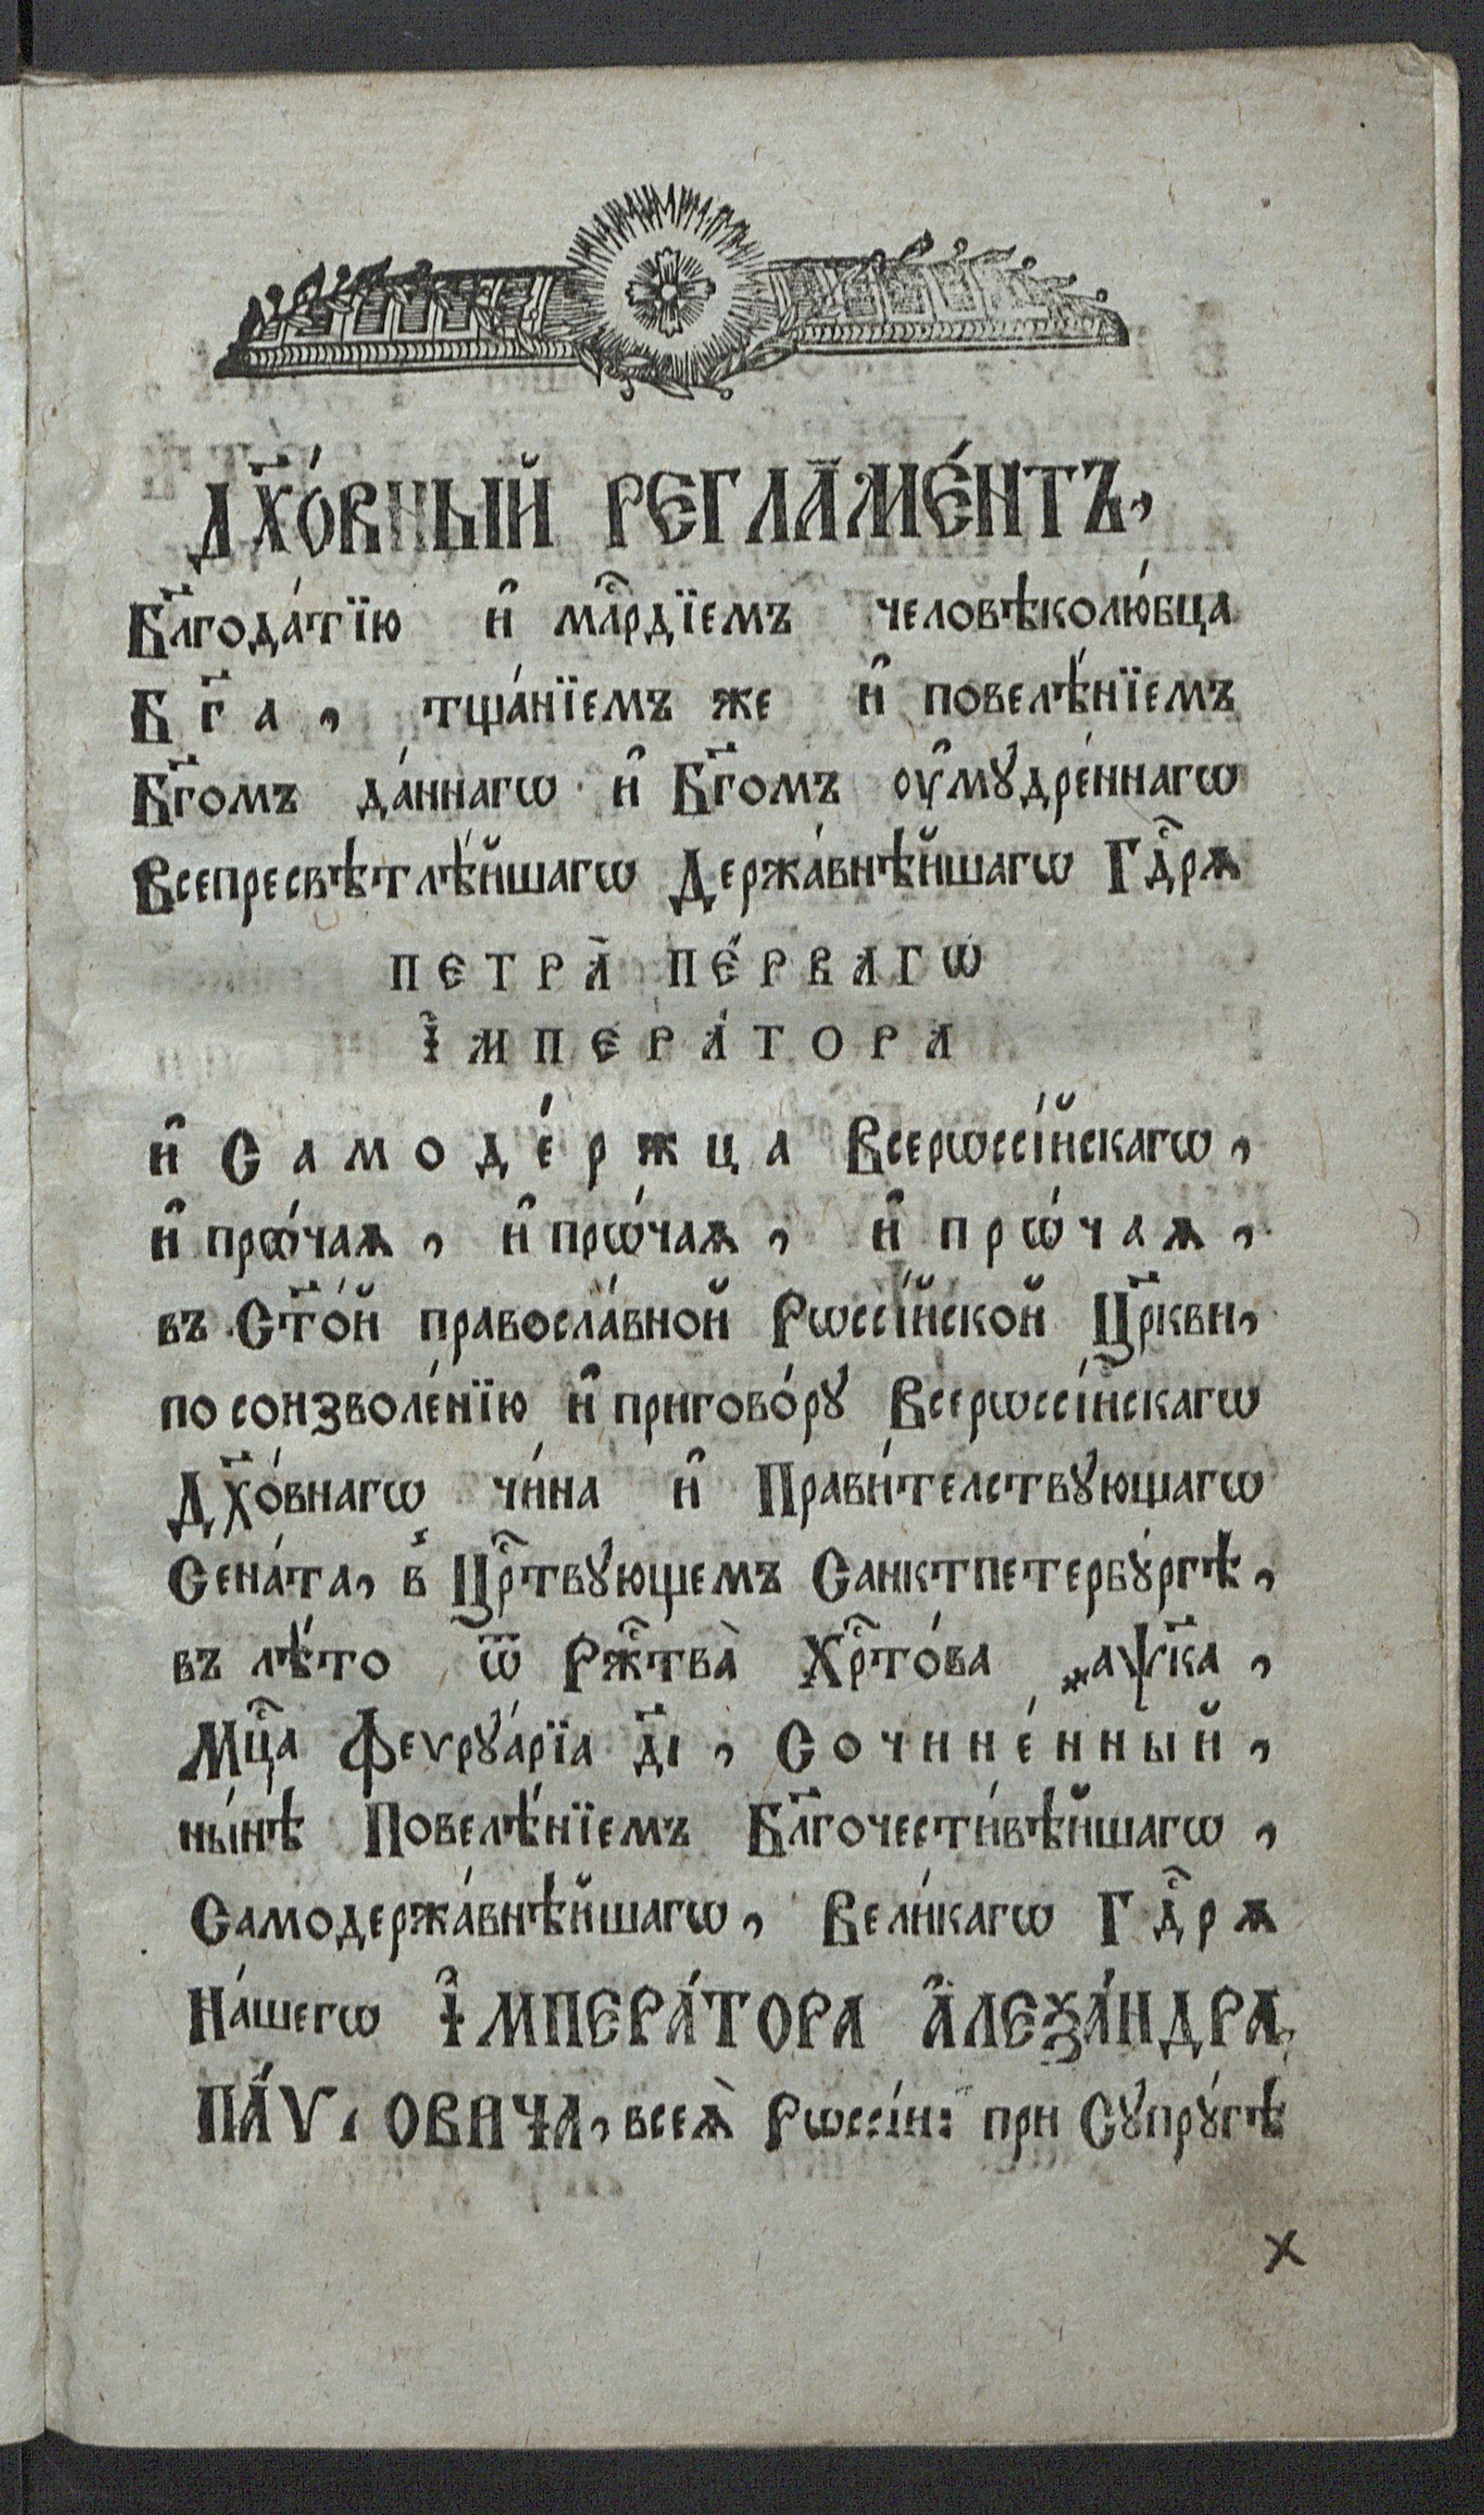 Д҃Хо́вный Регла́ме́нтъ,
Бл҃года́тїю и҆ млⷭ҇рдїемъ человѣколю́бца
Бг҃а, тща́нїемъ же и҆ повелѣ́нїемъ
Бг҃омъ да́ннагѡ и҆ Бг҃омъ оу҆мꙋдре́ннагѡ
Всепресвѣтлѣ́йшагѡ Держа́внѣйшагѡ Гдⷭ҇рѧ
ПЕТРА̀ ПЕ́РВАГѠ
І҆МПЕРА́ТОРА
и҆ Самоде́ржца Всерѡссі́йскагѡ,
и҆ прѡ́чаѧ, и҆ прѡ́чаѧ, и҆ прѡ́чаѧ,
въ Ст҃о́й правосла́вной Рѡссі́йской Цр҃кви,
по соизволе́нїю и҆ пригово́рꙋ Всерѡссі́йскагѡ
Дх҃о́внагѡ чи́на и҆ Прави́телствꙋющагѡ
Сена́та, в̾ Црⷭ҇твꙋющемъ Санктпетербꙋ́ргѣ,
въ лѣ́то ѿ Ржⷭ҇тва̀ Хрⷭ҇то́ва ҂аѱк҃а,
Мцⷭ҇а Феѵрꙋа́рїа д҃і, Сочине́нный,
ны́нѣ Повелѣ́нїемъ Бл҃гочести́вѣйшагѡ,
Самодержа́внѣйшагѡ, Вели́кагѡ Гдⷭ҇рѧ
На́шегѡ І҆МПЕРА́ТОРА А҆ЛЕѮА́НДРА
ПА́Ѵ҆ЛОВИЧА, всеѧ̀ Рѡссі́и: при Сꙋпрꙋ́гѣ
х